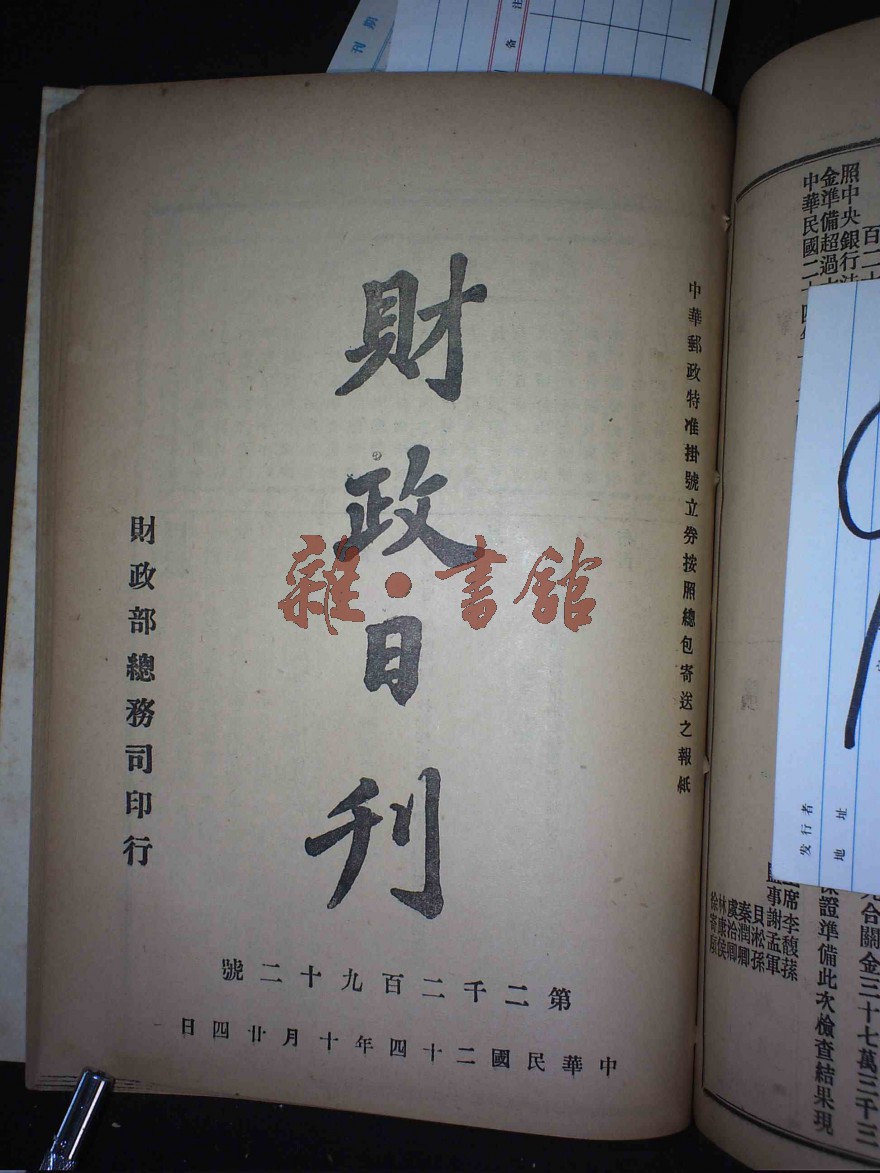 刊期
备注
照中央銀行法
金準備超過
中華民國二十四年
元合關金三十七萬三千三
保證準備此次檢查結果現
主席李馥蓀
監事謝孟軍
貝淞孫
秦潤卿
虞洽卿
林康侯
徐寄廎
发行者
地址
中華郵政特准掛號立券按照總包寄送之報紙
財政日刊
雜·書館
財政部總務司印行
第二千二百九十二號
中華民國二十四年十月廿四日